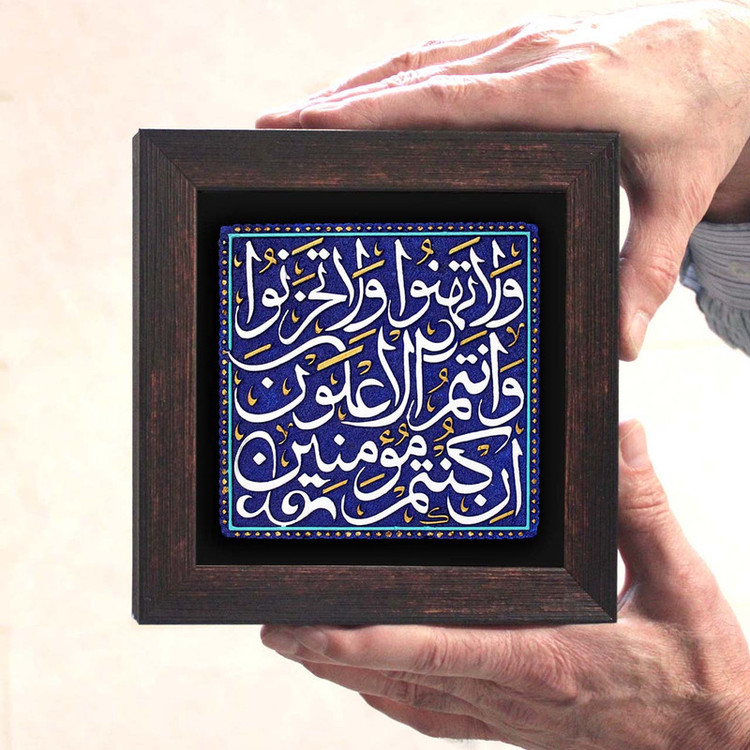 ولا تهنوا ولا تحزنوا
وانتم الاعلون
ان كنتم مؤمنين